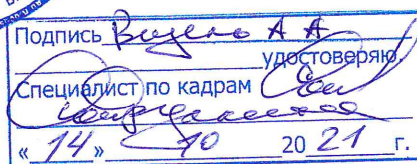 Подпись А А
удостоверяю
Специалист по кадрам
« 14 » 10 20 21 г.